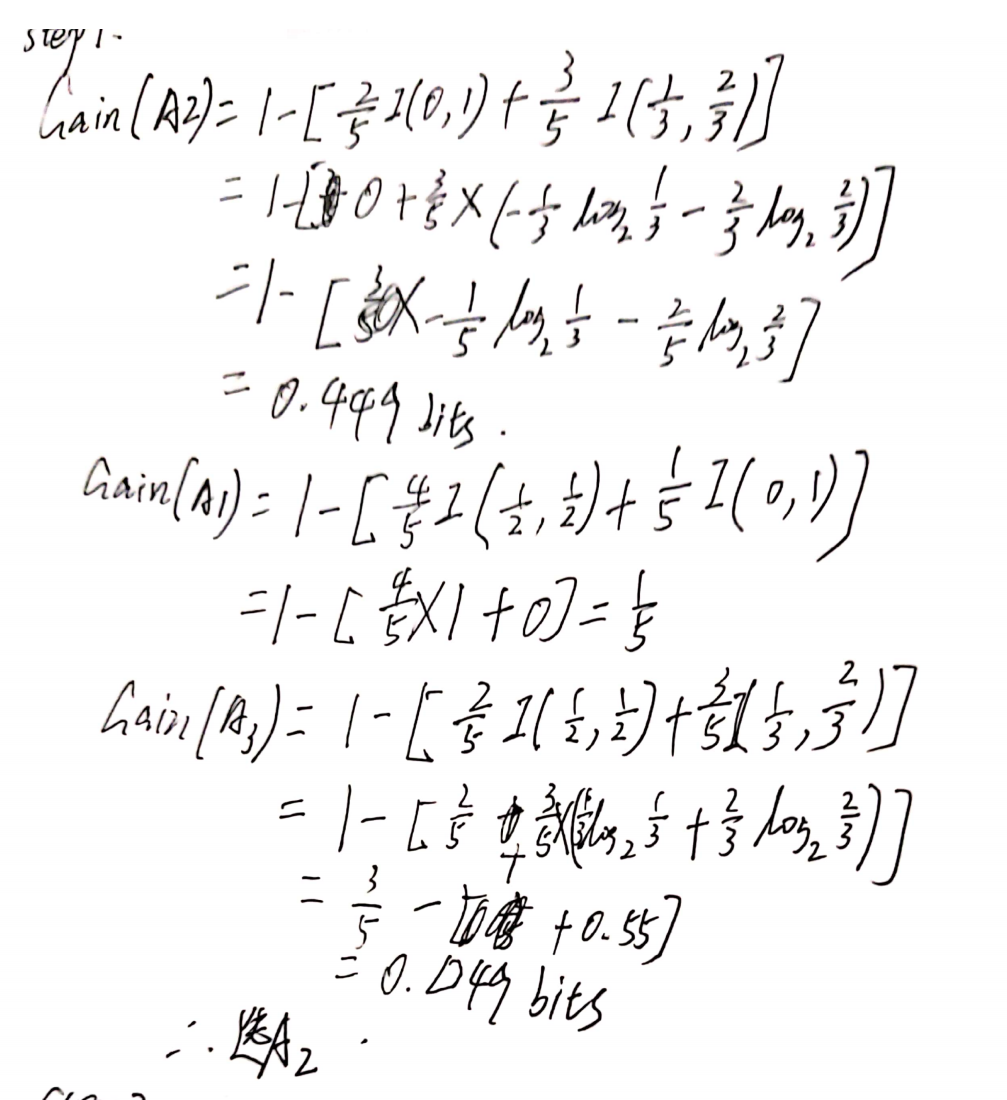 step 1.
Gain(A2) = 1 - [2/5 I(0,1) + 3/5 I(1/3, 2/3)]
= 1 - [0 + 3/5 × (-1/3 log₂ 1/3 - 2/3 log₂ 2/3)]
= 1 - [-1/5 log₂ 1/3 - 2/5 log₂ 2/3]
= 0.449 bits.
Gain(A1) = 1 - [4/5 I(1/2, 1/2) + 1/5 I(0,1)]
= 1 - [4/5 × 1 + 0] = 1/5
Gain(A₃) = 1 - [2/5 I(1/2, 1/2) + 3/5 I(1/3, 2/3)]
= 1 - [2/5 + 3/5 × (1/3 log₂ 1/3 + 2/3 log₂ 2/3)]
= 3/5 - [ + 0.55]
= 0.049 bits
∴ 选A₂.